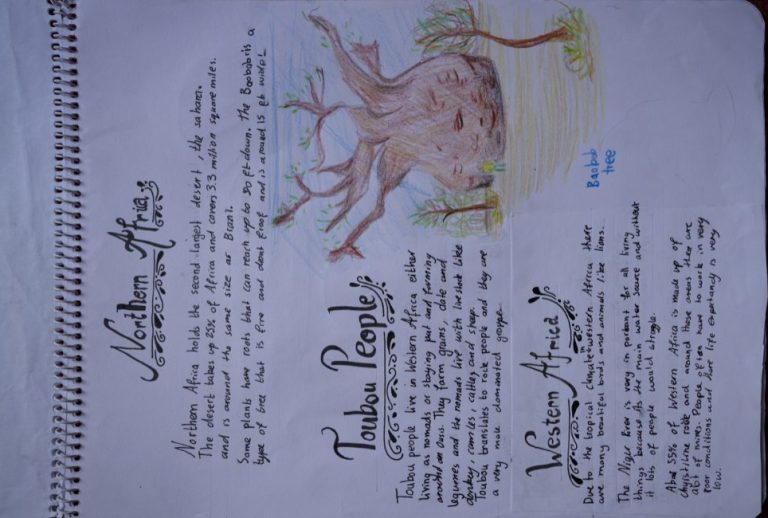 Northern Africa
Northern Africa holds the second largest desert, the sahara.
The desert takes up 25% of Africa and covers 3.3 million square miles.
and is around the same size as Brazil.
Some plants have roots that can reach up to 80 ft down. the Baobab is a
type of tree that is fire and dent proof and is around 15 ft wide!
Toubou People
Toubou people live in Western Africa either
living as nomads or staying put and farming
around an oasis. They farm grains, date and
legumes and the nomads live with livestock like
donkey, camles, cattle, and sheep.
Toubou translates to rock people and they are
a very male dominated group.
Baobab
tree
Western Africa
Due to the tropical climate in western Africa there
are many beautiful birds and animals like lions.
The Niger River is very important for all living
things because its the main water source and without
it lots of people would struggle.
About 55% of Western Africa is made up of
rocks and around those areas there are
alot of mines. People often have to work in very
poor conditions and life expectancy is very
low.